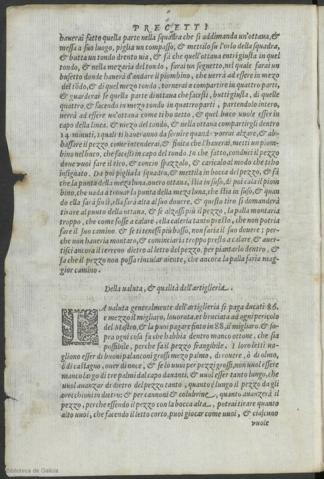 PRECETTI
hauerai fatto quella parte nella squadra che si addimanda un'ottaua, &
messa a suo luogo, piglia un compasso, & mettilo su l'orlo della squadra,
& butta un tondo drento uia, & fà che quell'ottaua entri giusta in quel
tondo, & nella mezaria del tondo, farai un segnetto, nel quale farai un
busetto donde hauerà d'andare il piombino, che uerrà ad essere in mezo
del tōdo, & di quel mezo tondo, tornerai a compartire in quattro parti,
& guarderai se quella parte diuitana che facesti, è ottaui giusta, di quelle
quattro, & facendo in mezo tondo in quattro parti, partendolo intero,
uerrà ad essere un'ottaua come t'ho detto, & quel buco uuole esser in
capo della linea, & mezo del tondo, & nella ottaua compartirgli dentro
14 minuti, i quali ti haueranno da seruire quando uorrai alzare, & ab-
bassare il pezzo come intenderai, & finito che l'hauerai, metti un piom-
bino nel buco, che facesti in capo del tondo. Io che fatto, conduci il pezzo
doue uuoi fare il tiro, & concio spazzalo, & caricalo al modo che t'ho
insegnato. Da poi piglia la squadra, & mettila in bocca del pezzo, & fà
che la punta della meza luna, ouero ottaua, stia in suso, di poi cala il piom
bino, che uada a trouar la punta della meza luna, che stia in suso, & quan
do ella farà so sù, ella farà alta al suo douere. & questo tiro si domanderà
tirare al punto della ottaua, & se alzassi più il pezzo, la palla montaria
troppo, che come fosse a calare, ella caleria tanto presto, che non potria
fare il suo camino. & se si tenessi più basso, non faria il suo douere; per-
che non haueria montato, & cominciaria troppo presto a calare, & auer-
tisci ancora il terreno dietro al letto del pezzo, per piantarlo dentro, &
fà che il pezzo non possa rinculare niente, che ancora la palla faria mag-
gior camino.
Della ualuta, & qualità dell'artiglieria.
LA ualuta generalmente dell'artiglieria si paga ducati 86.
e mezzo il migliaro, lauorata et bruciata ad ogni pericolo
del Mastro, & la puoi pagare sino in 88, il migliaro, & so-
pra ogni cosa fà che habbia dentro manco ottone, che sia
possibile, perche fa il pezzo frangibile. I loro letti uo-
gliono esser di buoni palanconi grossi mezo palmo, di rouere, ò di olmo,
ò di castagno, ouer di noce, & se lo uuoi per pezzi grossi, non uuol essere
manco largo di tre palmi dal capo dauanti, & uuol esser tanto lungo, che
uuol auanzar di dietro del pezzo tanto, quanto è lungo il pezzo da gli
orecchioni in dietro: & per cannoni & colubrine, quanto auanzerà il
pezzo, perche essendo il pezzo con la bocca alta, potrai tirare quanto
alto uuoi, che facendo il letto corto, puoi giocar come uuoi, & ciascuno
vuole
Biblioteca de Galicia